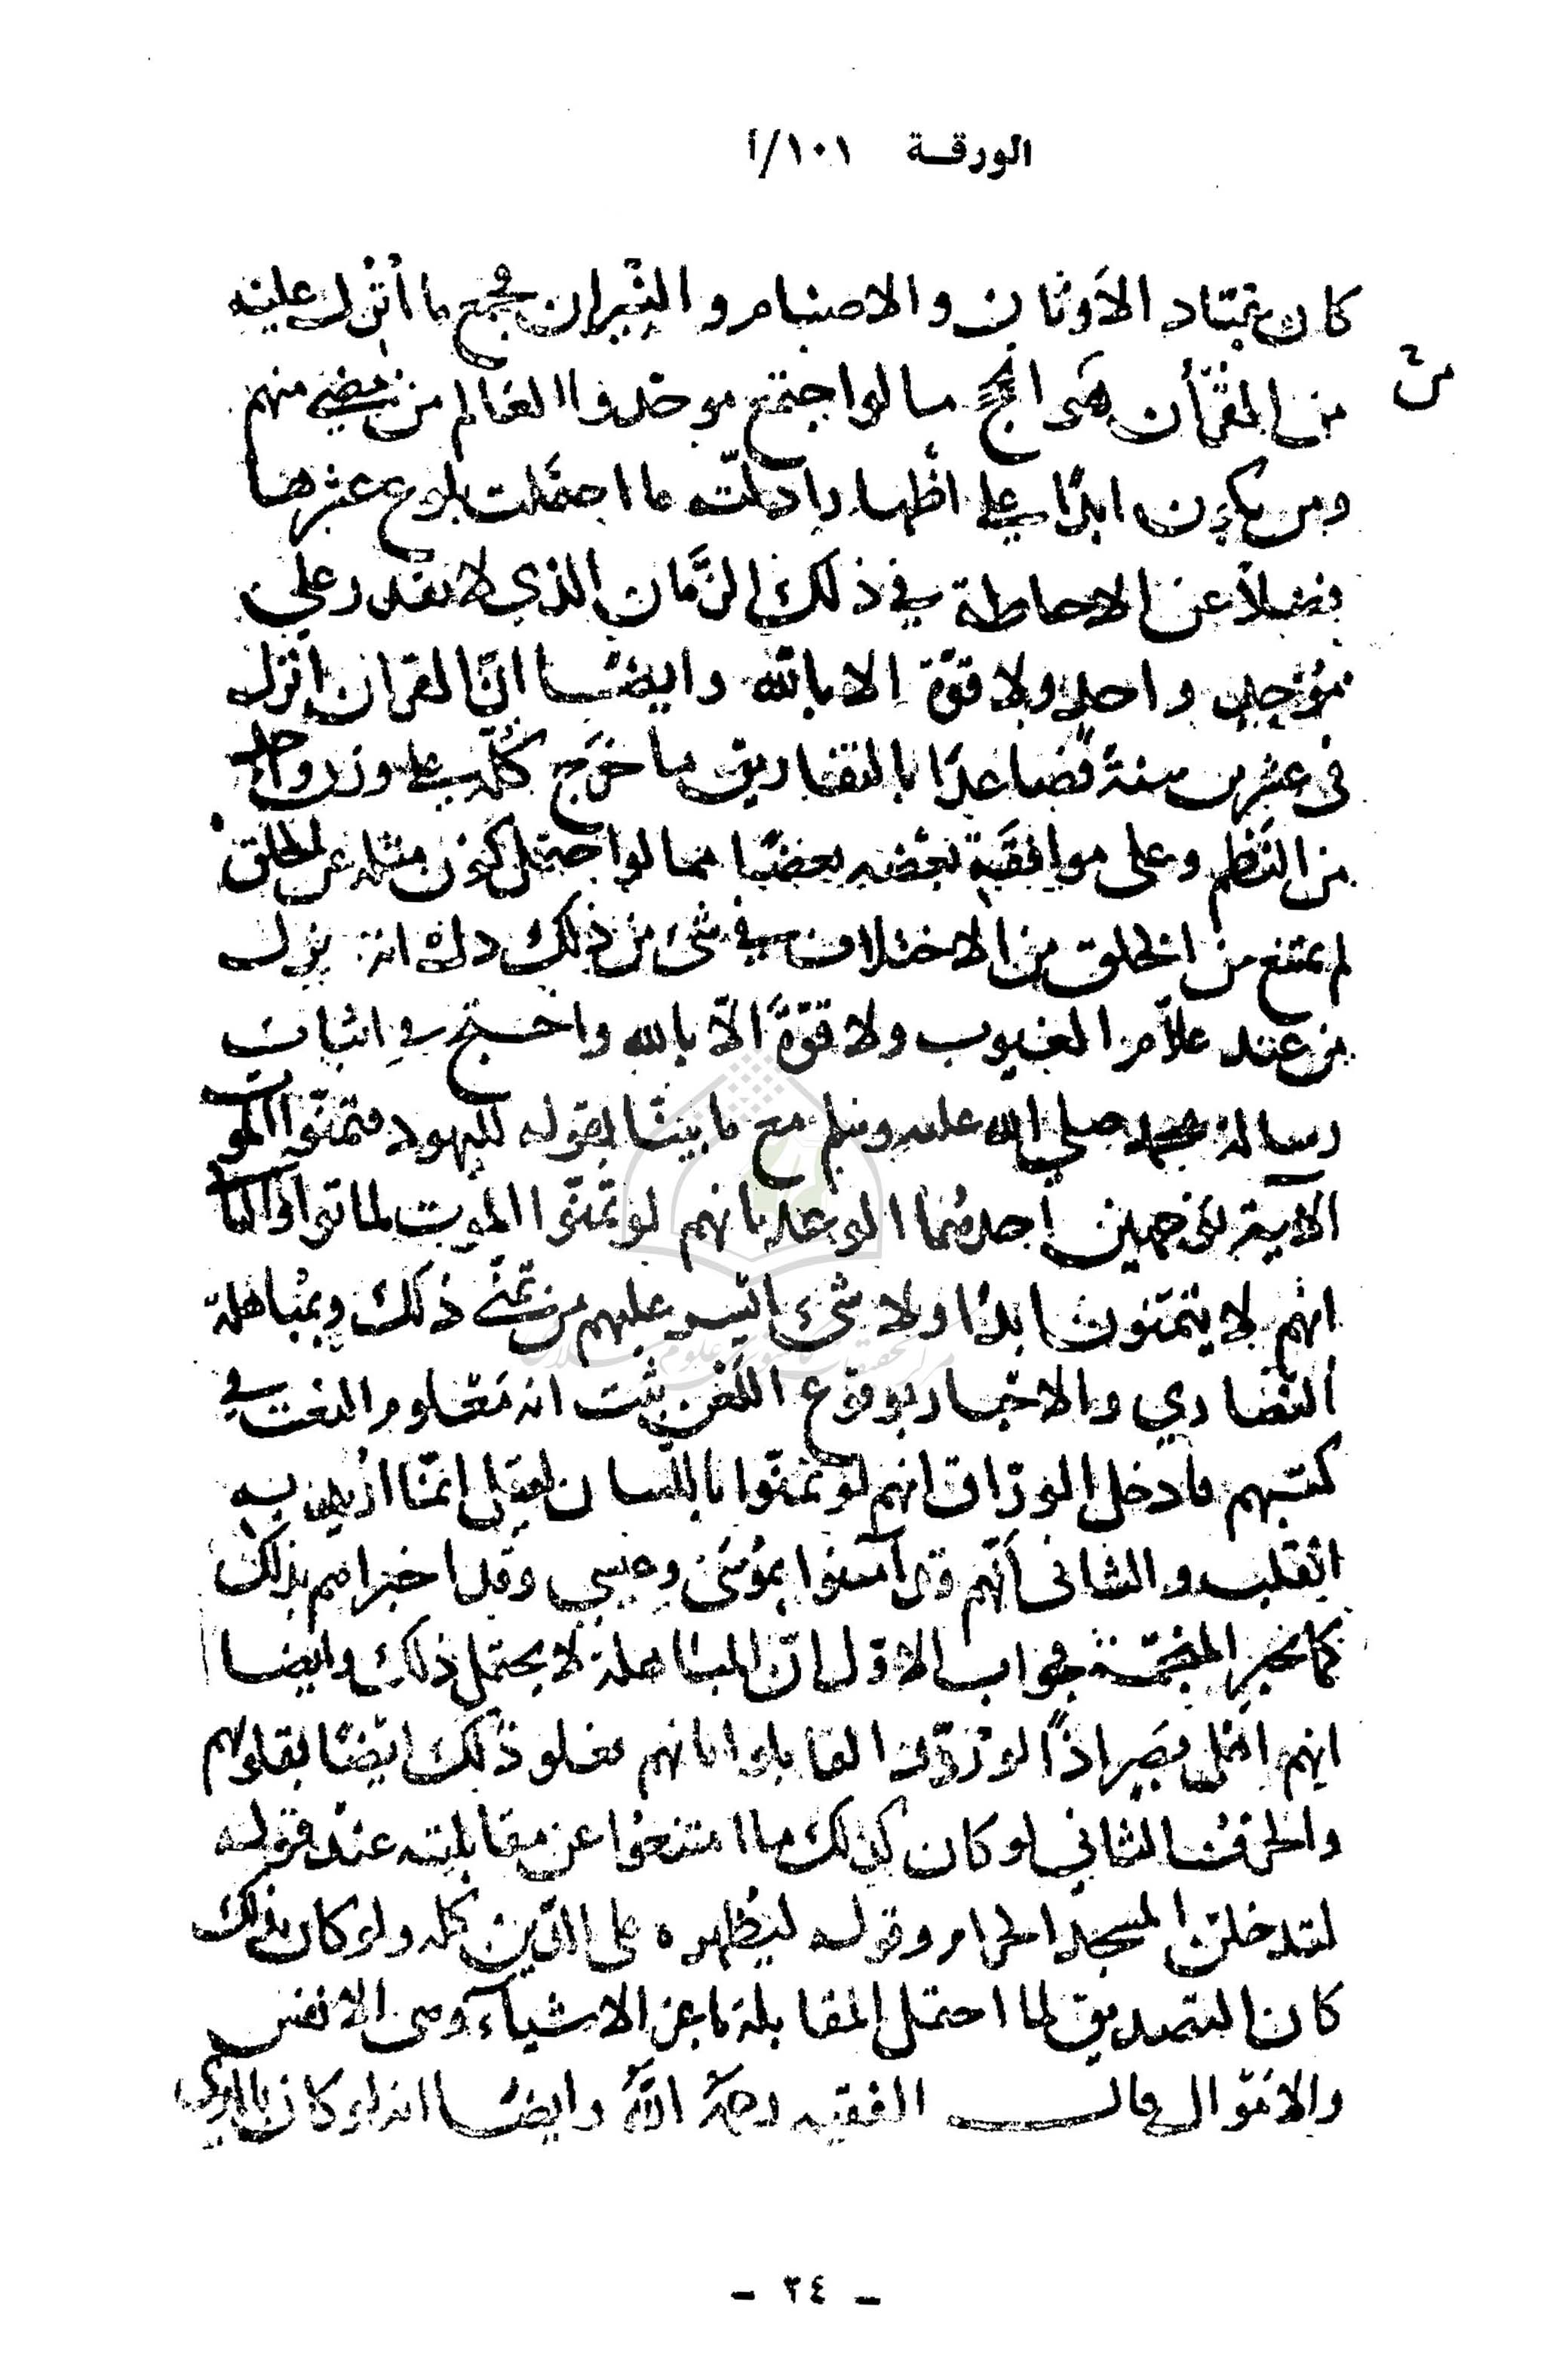 الورقة ١٠١/أ
كان بعُبّاد الأوثان والاصنام والنّيران فجمع ما أُنزل عليه
من
من القرآن من الحجج ما لو اجتمع موحدوا العالم من مضى منهم
ومن يكون ابدًا على اظهار ادلّته ما احتملت بلوغ عشرها
فضلًا عن الاحاطة في ذلك الزّمان الذي لا نقدر على
موحد واحد ولا قوّة الا بالله وايضًا انّ القران اُنزل
في عشرين سنة فصاعدًا بالتفاريق ما خرج كلّه على وزن واحد
من النّظم وعلى موافقة بعضه بعضًا مما لو احتمل كون مثله عن الخلق
لم يمتنع من الخلق من الاختلاف في شئ من ذلك دلّ انه نزل
من عند علاّم الغيوب ولا قوّة الّا بالله واحتج في اثبات
رسالة محمد صلى الله عليه وسلم مع ما بينّا بقوله لليهود فتمنّوا الموت
الاية بوجهين احدهما الوعد بانهم لو تمنّوا الموت لماتوا والثانى
انهم لا يتمنون ابدًا ولا شئ ايسر عليهم من تمنّى ذلك وبمباهلة
النّصارى والاخبار بوقوع اللعن ثبت انه معلوم النعت في
كتبهم فادخل الورّاق انهم لو تمنّوا باللسان لقيل انّما اريد به
القلب والثانى أنّهم قد آمنوا بموسى وعيسى وقد اخبراهم بذلك
كما يخبر المنجّمة جواب الاوّل انّ المباهلة لا يحتمل ذلك وايضا
انهم فعلوا ذلك ايضًا بقلوبهم
والحرف الثاني لو كان كذلك ما امتنعوا عن مقابلته عند قوله
لتدخلن المسجد الحرام وقوله ليظهره على الدّين كله ولو كان بذلك
كان التصديق لما احتمل المقابلة باعز الاشياء وهى الانفس
والاموال قال الفقيه رحمه الله وايضًا انه لو كان بالذى
- ٢٤ -